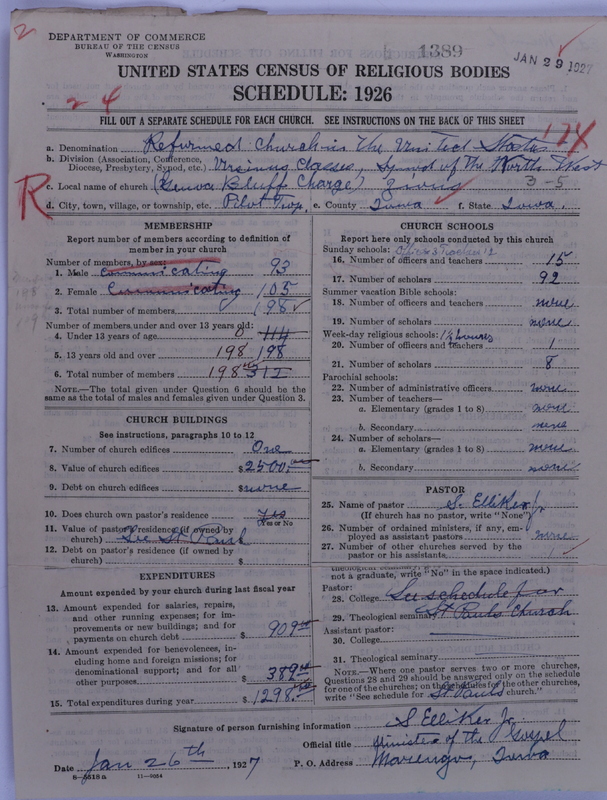 DEPARTMENT OF COMMERCE
BUREAU OF THE CENSUS
WASHINGTON
1389
JAN 29 1927
UNITED STATES CENSUS OF RELIGIOUS BODIES
SCHEDULE: 1926
2 4
FILL OUT A SEPARATE SCHEDULE FOR EACH CHURCH. SEE INSTRUCTIONS ON THE BACK OF THIS SHEET
174
a. Denomination Reformed Church in the United States
b. Division (Association, Conference, Diocese, Presbytery, Synod, etc.) Ursinus Classes, Synod of the North West
c. Local name of church (Genoa Bluff Charge) 3-5
R
d. City, town, village, or township, etc. Pilot Twp. e. County Iowa f. State Iowa.
MEMBERSHIP
Report number of members according to definition of member in your church
Number of members, by sex:
1. Male Communicating 93
2. Female Communicating 105
3. Total number of members 198
Number of members under and over 13 years old:
4. Under 13 years of age 0 114
5. 13 years old and over 198 198
6. Total number of members 198 312
NOTE.—The total given under Question 6 should be the same as the total of males and females given under Question 3.
CHURCH BUILDINGS
See instructions, paragraphs 10 to 12
7. Number of church edifices One
8. Value of church edifices $2500
9. Debt on church edifices $none
10. Does church own pastor's residence? Yes
Yes or No
11. Value of pastor's residence (if owned by church) See St Pauls
12. Debt on pastor's residence (if owned by church) $
EXPENDITURES
Amount expended by your church during last fiscal year
13. Amount expended for salaries, repairs, and other running expenses; for improvements or new buildings; and for payments on church debt $ 909
14. Amount expended for benevolences, including home and foreign missions; for denominational support; and for all other purposes $ 389
15. Total expenditures during year $ 1298
CHURCH SCHOOLS
Report here only schools conducted by this church
Sunday schools:
16. Number of officers and teachers 15
17. Number of scholars 92
Summer vacation Bible schools:
18. Number of officers and teachers none
19. Number of scholars none
Week-day religious schools: 1½ hours
20. Number of officers and teachers 1
21. Number of scholars 8
Parochial schools:
22. Number of administrative officers none
23. Number of teachers—
a. Elementary (grades 1 to 8) none
b. Secondary none
24. Number of scholars—
a. Elementary (grades 1 to 8) none
b. Secondary none
PASTOR
25. Name of pastor S. Elliker Jr.
(If church has no pastor, write "None")
26. Number of ordained ministers, if any, employed as assistant pastors none
27. Number of other churches served by the pastor or his assistants 1
not a graduate, write "No" in the space indicated.)
Pastor:
28. College See schedule for
29. Theological seminary St Pauls Church
Assistant pastor:
30. College
31. Theological seminary
NOTE.—Where one pastor serves two or more churches, Questions 28 and 29 should be answered only on the schedule for one of the churches; on the schedules for the other churches, write "See schedule for St Pauls church."
Signature of person furnishing information S Elliker Jr.
Official title Minister of the Gospel
Date Jan 26th, 1927 P. O. Address Marengo, Iowa
11—9064